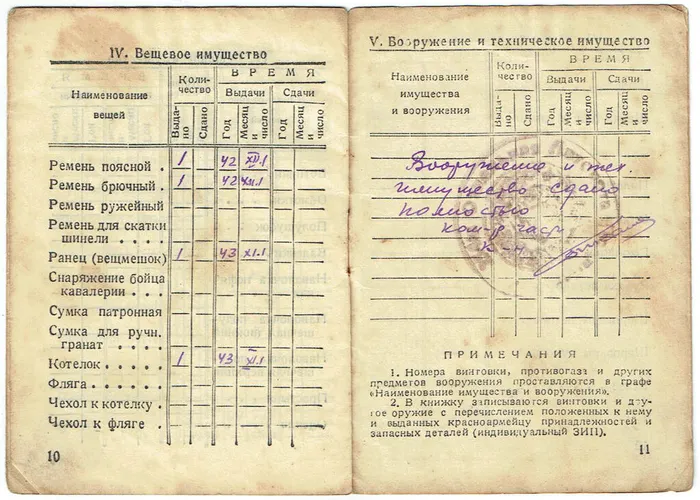 IV. Вещевое имущество
Наименование вещей
Коли-
чество
ВРЕМЯ
Выдачи
Сдачи
Выда-
но
Сдано
Год
Месяц
и
число
Год
Месяц
и число
Ремень поясной . 1 42 XII.1
Ремень брючный . 1 42 XII.1
Ремень ружейный
Ремень для скатки
шинели . . . . .
Ранец (вещмешок) 1 43 XI.1
Снаряжение бойца
кавалерии . . . .
Сумка патронная
Сумка для ручн.
гранат . . . . .
Котелок . . . . . 1 43 XI.1
Фляга . . . . .
Чехол к котелку .
Чехол к фляге . .
10
V. Вооружение и техническое имущество
Наименование
имущества
и вооружения
Коли-
чество
ВРЕМЯ
Выдачи
Сдачи
Выдано
Сдано
Год
Месяц
и число
Год
Месяц
и число
Вооружение и тех.
имущество сдано
полностью
ком-р
к-н
ПРИМЕЧАНИЯ
1. Номера винтовки, противогаза и других
предметов вооружения проставляются в графе
«Наименование имущества и вооружения».
2. В книжку записываются винтовки и дру-
гое оружие с перечислением положенных к нему
и выданных красноармейцу принадлежностей и
запасных деталей (индивидуальный ЗИП).
11